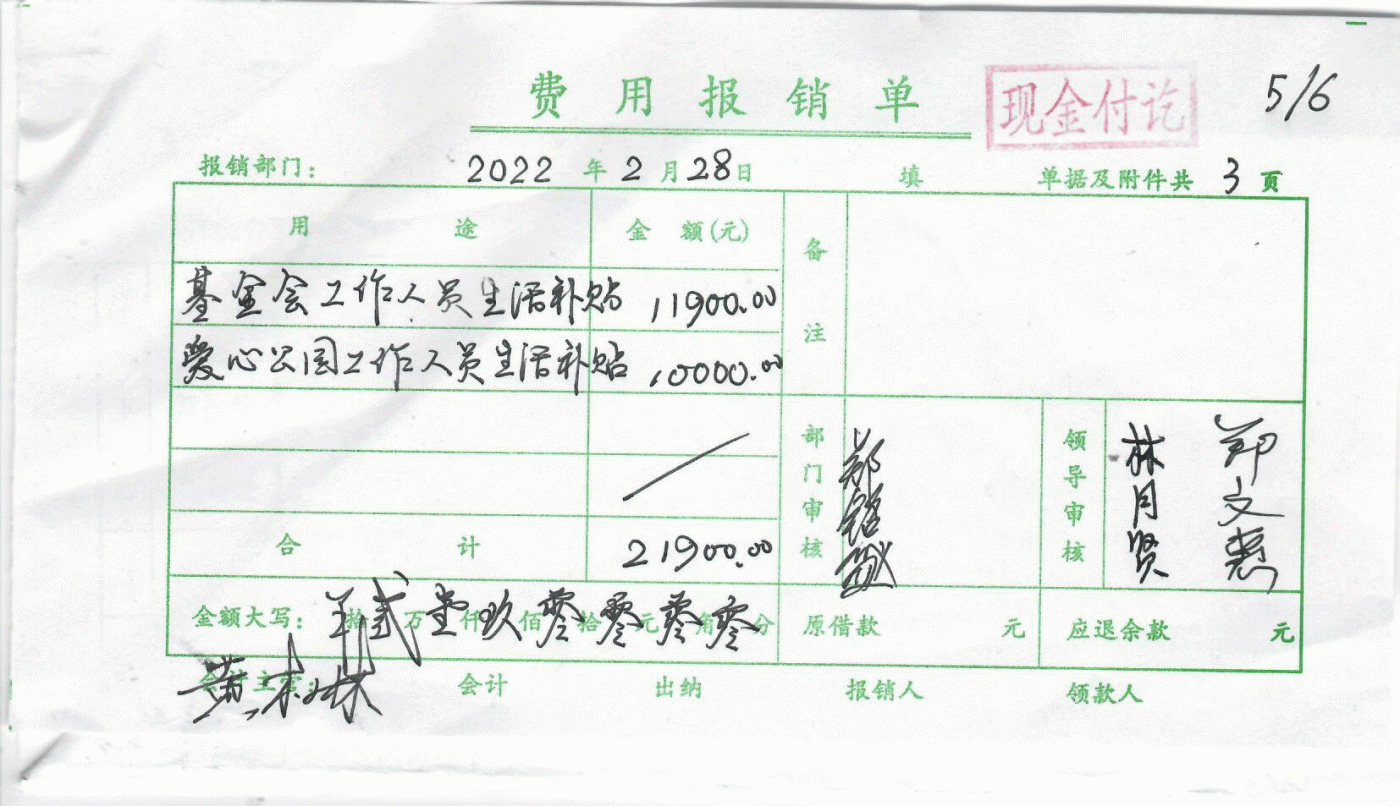 费用报销单
现金付讫
5/6
报销部门: 2022年2月28日 填 单据及附件共3页
用途 金额(元) 备注
基金会工作人员生活补贴 11900.00
爱心公园工作人员生活补贴 10000.00
部门审核 领导审核 林月贤 郑文惠
合计 21900.00
金额大写: 拾贰万壹仟玖佰零拾零元零角零分 原借款 元 应退余款 元
会计主管: 会计 出纳 报销人 领款人